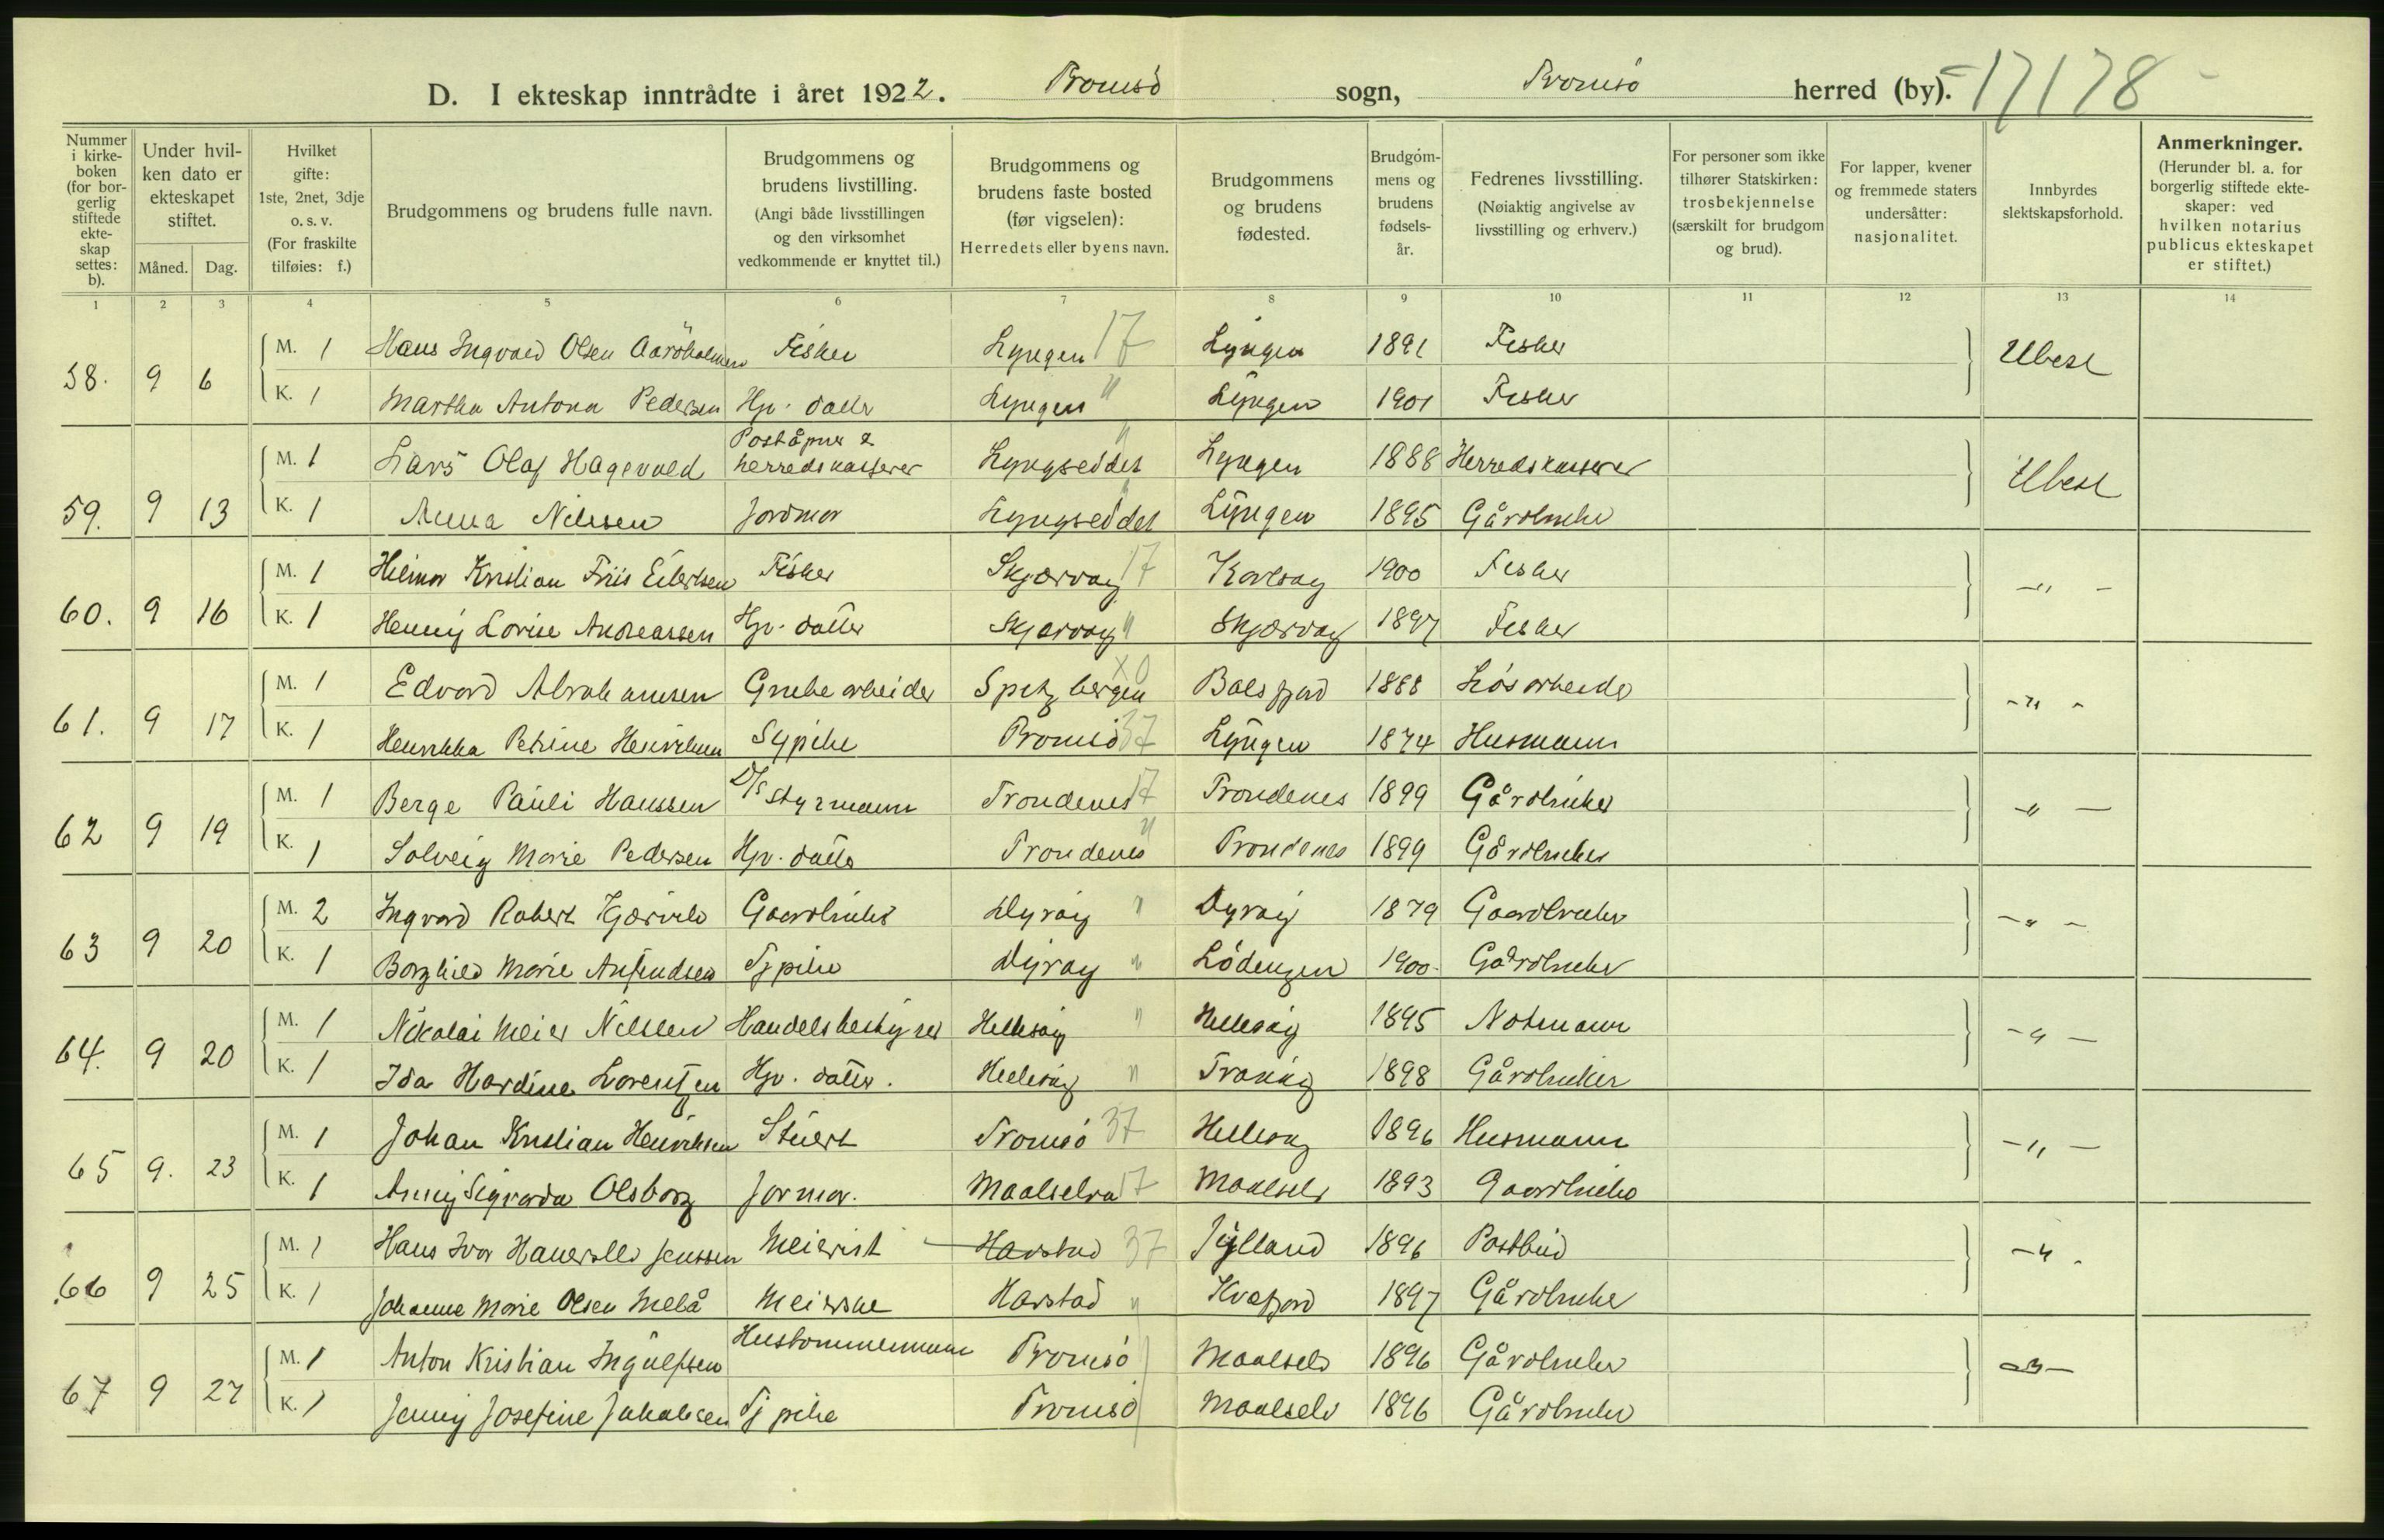 D. I ekteskap inntrådte i året 1922. Tromsö sogn, Tromsö herred (by). 17178
Nummer i kirke-boken (for bor-gerlig stiftede ekte-skap settes: b).
Under hvil-ken dato er ekteskapet stiftet.
Måned. Dag.
Hvilket gifte: 1ste, 2net, 3dje o. s. v. (For fraskilte tilføies: f.)
Brudgommens og brudens fulle navn.
Brudgommens og brudens livstilling. (Angi både livsstillingen og den virksomhet vedkommende er knyttet til.)
Brudgommens og brudens faste bosted (før vigselen): Herredets eller byens navn.
Brudgommens og brudens fødested.
Brudgom-mens og brudens fødsels-år.
Fedrenes livsstilling. (Nøiaktig angivelse av livsstilling og erhverv.)
For personer som ikke tilhører Statskirken: trosbekjennelse (særskilt for brudgom og brud).
For lapper, kvener og fremmede staters undersåtter: nasjonalitet.
Innbyrdes slektskapsforhold.
Anmerkninger. (Herunder bl. a. for borgerlig stiftede ekte-skaper: ved hvilken notarius publicus ekteskapet er stiftet.)
1 2 3 4 5 6 7 8 9 10 11 12 13 14
58. 9 6 M. 1 Hans Ingvald Olsen Fisker Lyngen 17 Lyngen 1891 Fisker Ubesl
K. 1 Martha Antona Pedersen Hjv. datter Lyngen " Lyngen 1901 Fisker
59. 9 13 M. 1 Lars Olaf Hagevold Poståpner & herredskasserer Lyngseidet " Lyngen 1888 Herredskasserer Ubesl
K. 1 Anna Nilssen Jordmor Lyngseidet " Lyngen 1895 Gårdbruker
60. 9 16 M. 1 Hilmar Kristian Friis Eilertsen Fisker Skjærvøy 17 Karlsøy 1900 Fisker - " -
K. 1 Henny Lovise Andreassen Hjv. datter Skjærvøy " Skjærvøy 1897 Fisker
61. 9 17 M. 1 Edvard Abrahamsen Grubearbeider Spitzbergen X0 Balsfjord 1888 Løsarbeider - " -
K. 1 Henrikka Petrine Henriksen Sypike Tromsö 37 Lyngen 1874 Husmann
62 9 19 M. 1 Berge Pauli Hanssen D/S styrmann Trondenes 17 Trondenes 1899 Gårdbruker - " -
K. 1 Solveig Marie Pedersen Hjv. datter Trondenes " Trondenes 1899 Gårdbruker
63 9 20 M. 2 Ingvard Robert Gaardbruker Dyrøy " Dyrøy 1879 Gaardbruker - " -
K. 1 Borghild Marie Anfindsen Sypike Dyrøy " Lödingen 1900 Gårdbruker
64. 9 20 M. 1 Nikolai Meier Nilssen Handelsbestyrer Hillesøy " Hillesøy 1895 Notmann - " -
K. 1 Ida Hardine Lorentzen Hjv. datter. Hillesøy " Tranøy 1898 Gårdbruker
65 9. 23 M. 1 Johan Kristian Henriksen Stuert Tromsö 37 Hillesøy 1896 Husmann - " -
K. 1 Anny Sigvarda Olsborg Jormor. Maalselv 17 Maalselv 1893 Gaardbruker
66 9 25 M. 1 Hans Ivar Jenssen Meierist Harstad 37 Jylland 1896 Postbud - " -
K. 1 Johanne Marie Olsen Melå Meierske Harstad " Kvæfjord 1897 Gårdbruker
67 9 27 M. 1 Anton Kristian Ingulfsen Hustömmermann Tromsö Maalselv 1896 Gårdbruker - " -
K. 1 Jenny Josefine Jakobsen Sypike Tromsö Maalselv 1896 Gårdbruker